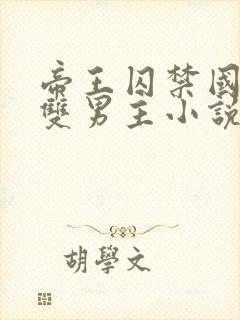 帝王囚禁國
雙男主小說
胡學文